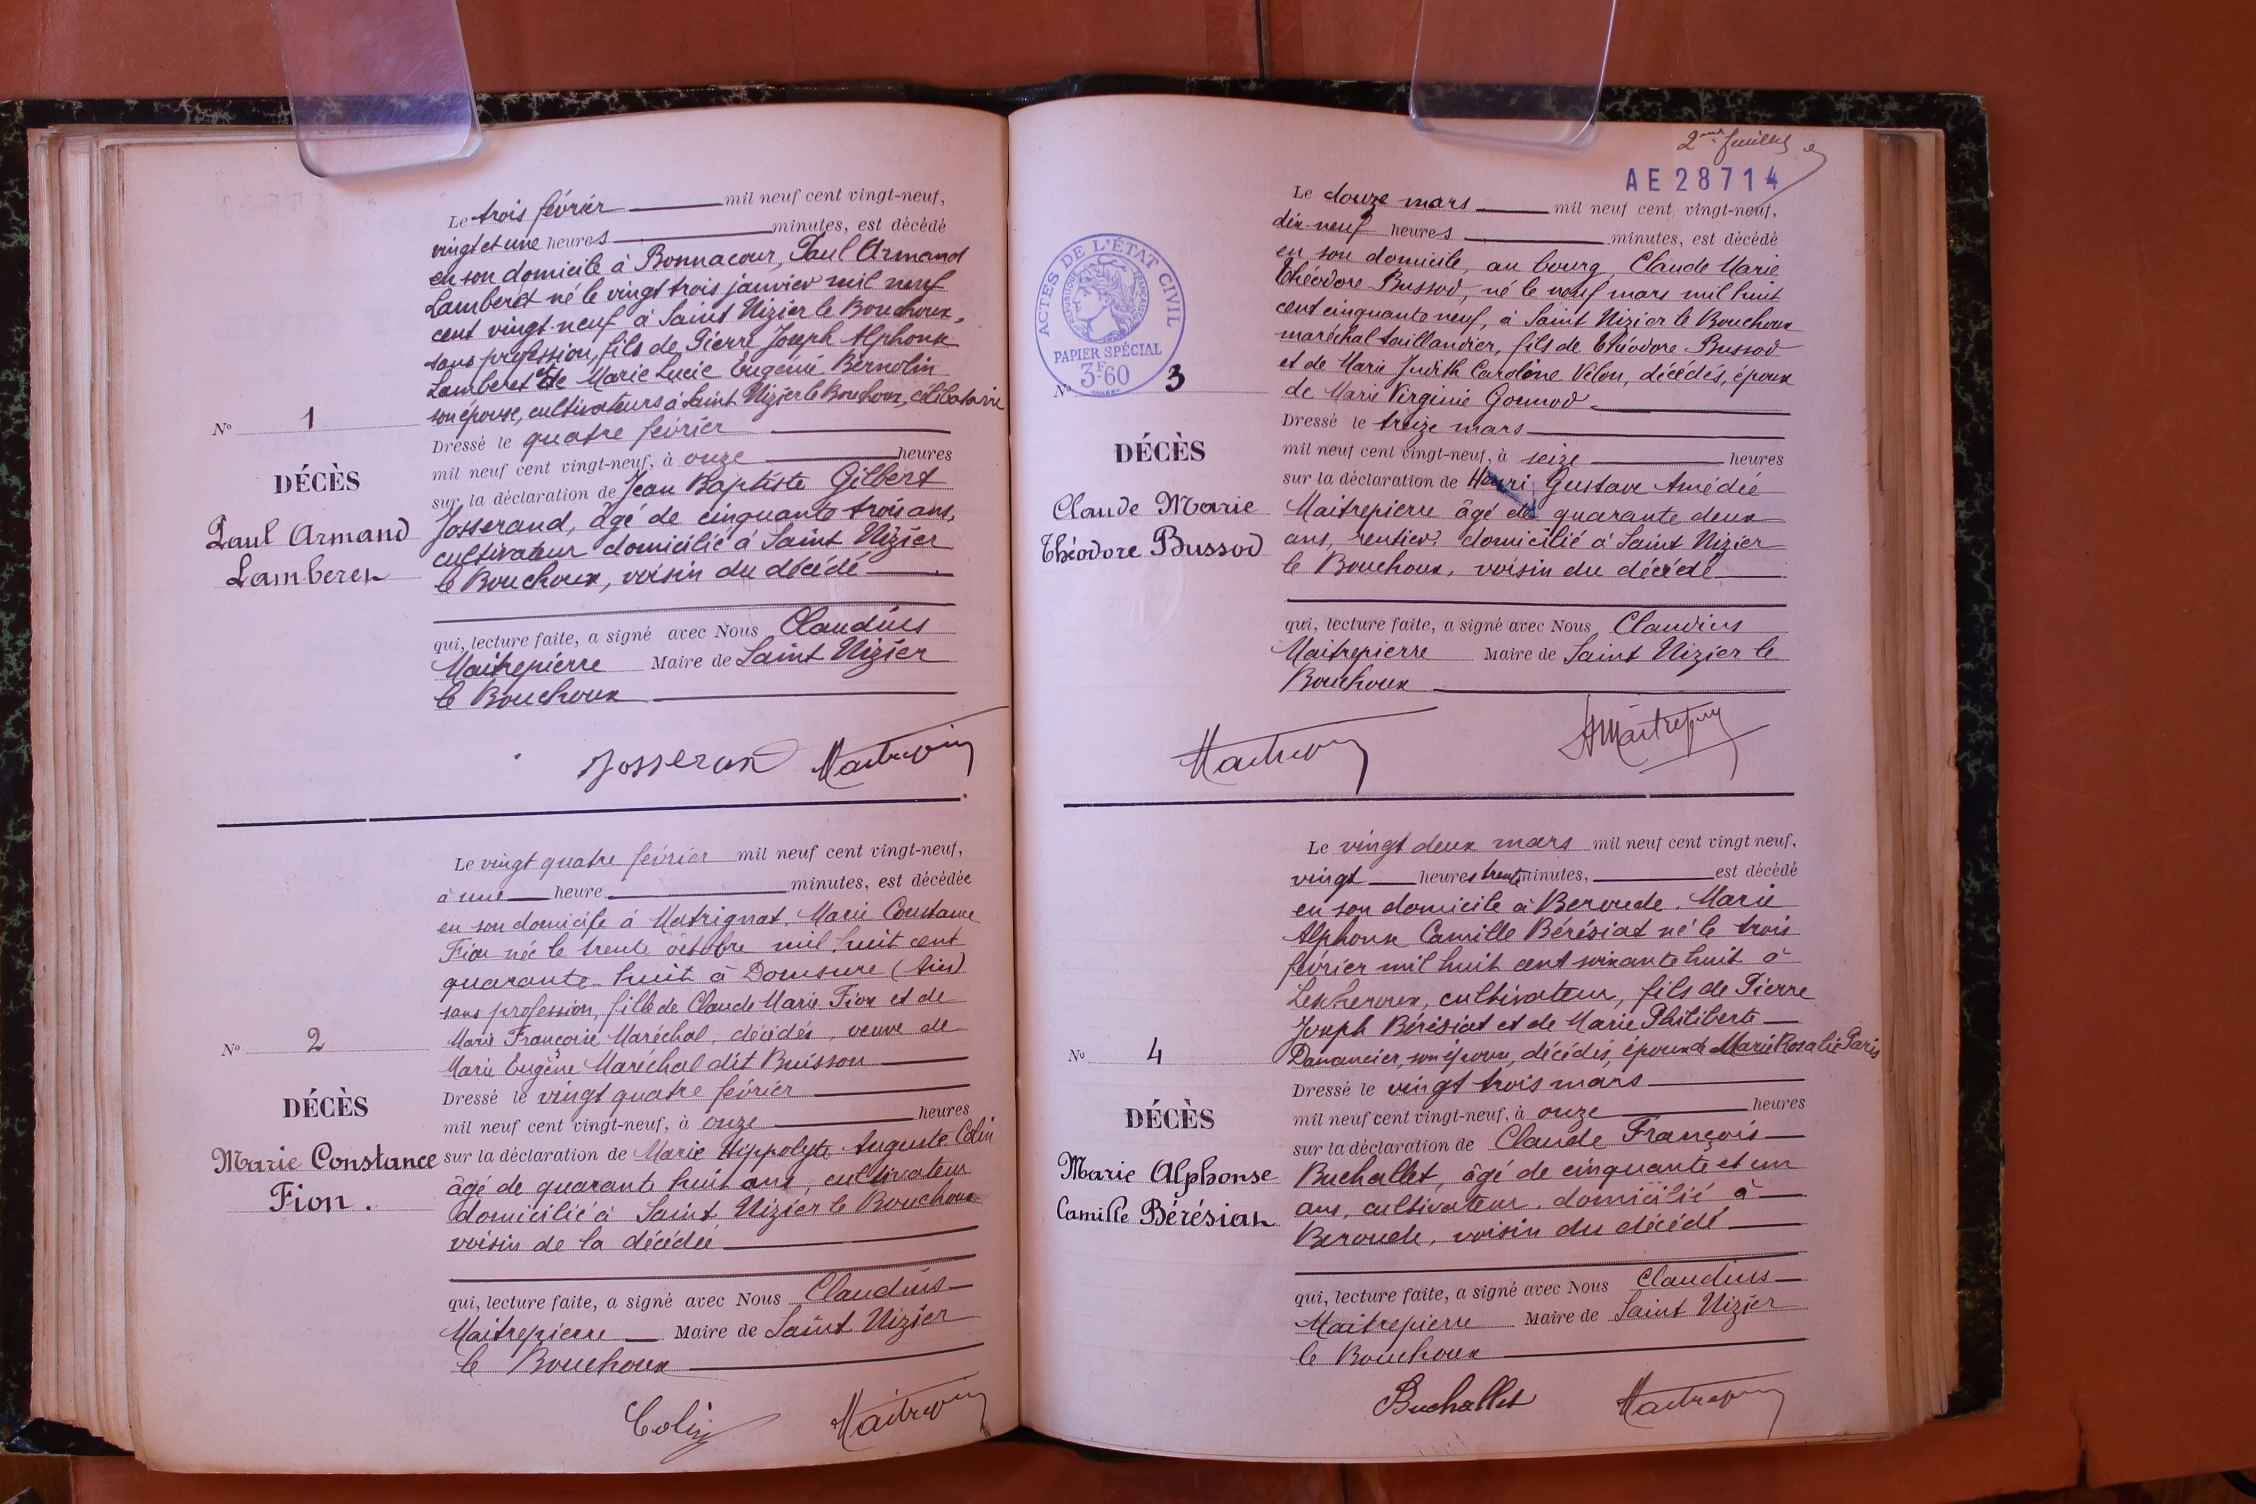 Le trois février mil neuf cent vingt-neuf,
vingt et une heures minutes, est décédé
en son domicile à Bonnacour, Paul Armand
Lamberet né le vingt trois janvier mil neuf
cent vingt-neuf à Saint Nizier le Bouchoux,
sans profession, fils de Pierre Joseph Alphonse
Lamberet et de Marie Lucie Eugénie Bernolin
son épouse, cultivateurs à Saint Nizier le Bouchoux, célibataire
Dressé le quatre février
mil neuf cent vingt-neuf, à onze heures
sur la déclaration de Jean Baptiste Gilbert
Josserand, âgé de cinquante trois ans,
cultivateur domicilié à Saint Nizier
le Bouchoux, voisin du décédé
qui, lecture faite, a signé avec Nous Claudius
Maitrepierre Maire de Saint Nizier
le Bouchoux
Nº 1
DÉCÈS
Paul Armand
Lamberet
Josseran
Le vingt quatre février mil neuf cent vingt-neuf,
à une heure minutes, est décédée
en son domicile à Matrignat, Marie Constance
Fion née le trente octobre mil huit cent
quarante huit à Domsure (Ain)
sans profession, fille de Claude Marie Fion et de
Marie Françoise Maréchal, décédés, veuve de
Marie Eugène Maréchal dit Buisson
Dressé le vingt quatre février
mil neuf cent vingt-neuf, à onze heures
sur la déclaration de Marie Hyppolyte Auguste Colin
âgé de quarante huit ans, cultivateur
domicilié à Saint Nizier le Bouchoux
voisin de la décédée
qui, lecture faite, a signé avec Nous Claudius
Maitrepierre Maire de Saint Nizier
le Bouchoux
Nº 2
DÉCÈS
Marie Constance
Fion.
Colin
2me feuillet
AE 28714
ACTES DE L'ÉTAT CIVIL
PAPIER SPÉCIAL
3F60
Le douze mars mil neuf cent vingt-neuf,
dix-neuf heures minutes, est décédé
en son domicile, au bourg, Claude Marie
Théodore Bussod, né le neuf mars mil huit
cent cinquante neuf, à Saint Nizier le Bouchoux
maréchal taillandier, fils de Théodore Bussod
et de Marie Judith Caroline Velon, décédés, époux
de Marie Virginie Gounod
Dressé le treize mars
mil neuf cent vingt-neuf, à seize heures
sur la déclaration de Henri Gustave Amédée
Maitrepierre âgé de quarante deux
ans, rentier domicilié à Saint Nizier
le Bouchoux, voisin du décédé
qui, lecture faite, a signé avec Nous Claudius
Maitrepierre Maire de Saint Nizier le
Bouchoux
Nº 3
DÉCÈS
Claude Marie
Théodore Bussod
Le vingt deux mars mil neuf cent vingt neuf,
vingt heures trente minutes, est décédé
en son domicile à Beroude, Marie
Alphonse Camille Bérésiat né le trois
février mil huit cent soixante huit à
Lescheroux, cultivateur, fils de Pierre
Joseph Bérésiat et de Marie Philiberte
Danancier, son épouse, décédés, époux de Marie Rosalie Paris
Dressé le vingt trois mars
mil neuf cent vingt-neuf, à onze heures
sur la déclaration de Claude François
Buchallet, âgé de cinquante et un
ans, cultivateur, domicilié à
Beroude, voisin du décédé
qui, lecture faite, a signé avec Nous Claudius
Maitrepierre Maire de Saint Nizier
le Bouchoux
Nº 4
DÉCÈS
Marie Alphonse
Camille Bérésiat
Buchallet